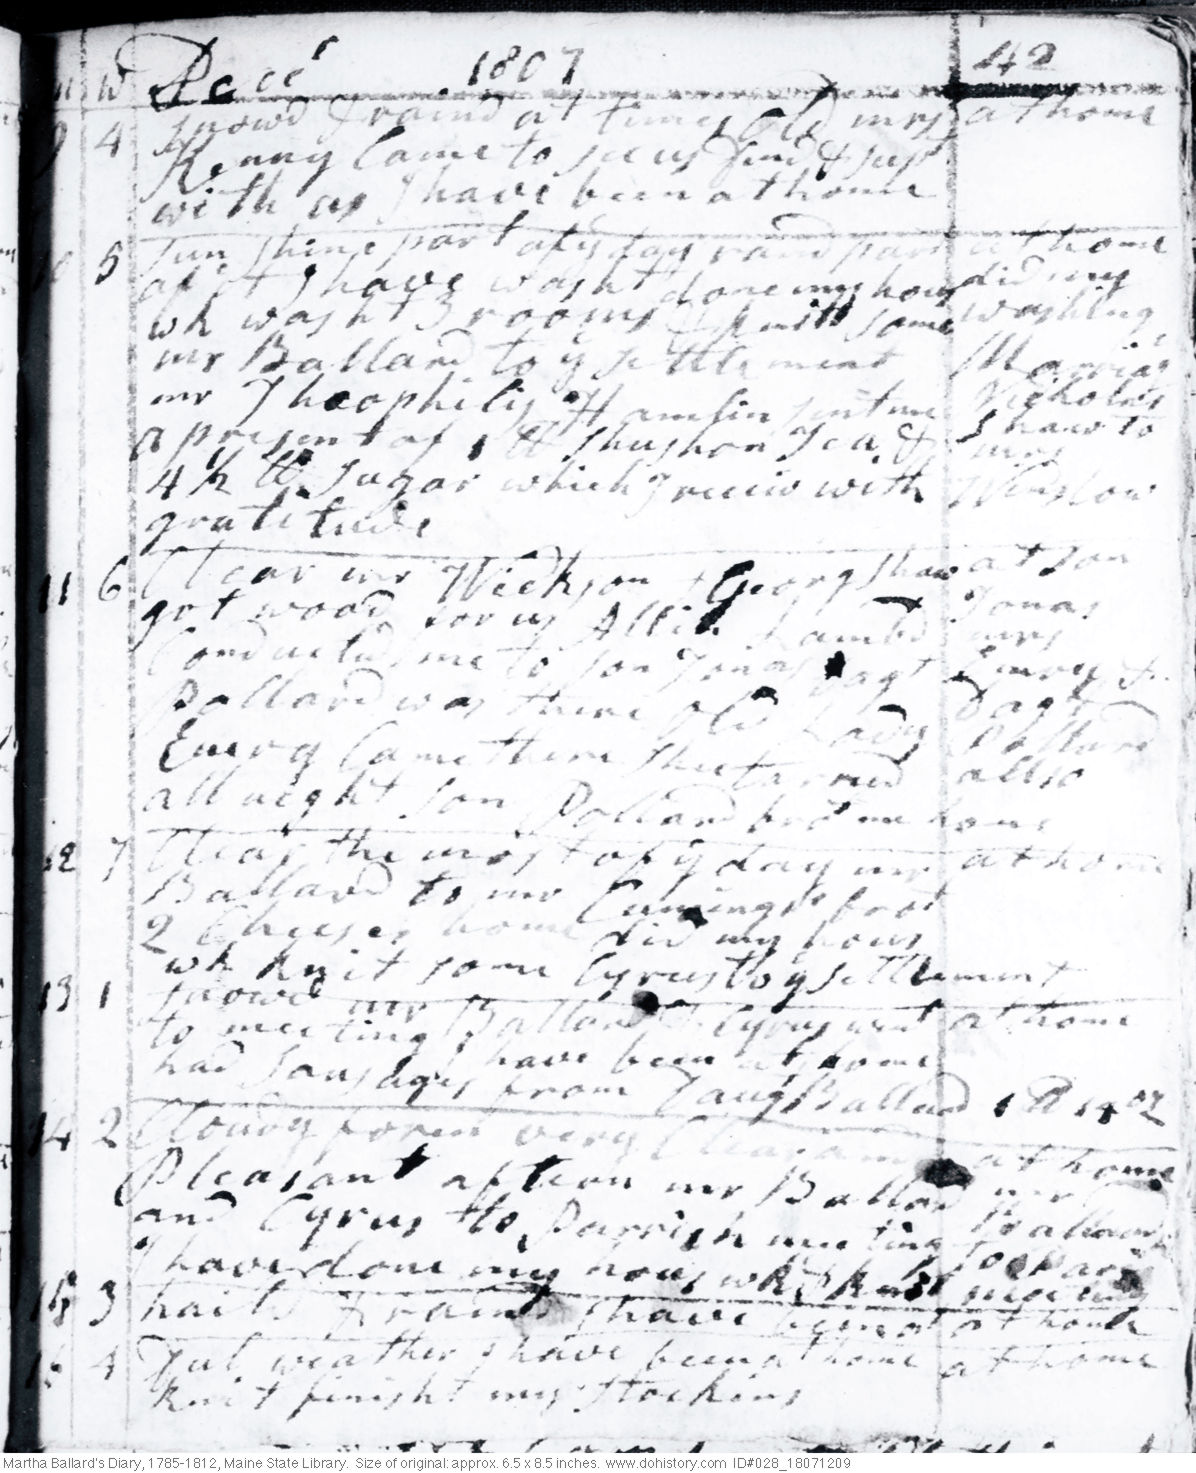 M W Decr 1807 42
9 4 Snowd & raind at times Old mrs at home
Kenny Came to see us dind & sup't
with us I have been at home
10 5 Sun shine part of y day raind part at home
of it I have washt done my hous did my
wk washt 3 rooms & knitt some washing
mr Ballard to y settlement
mr Theophilus Hamlin sent me Nichols
a present of 1 lb Shushon Tea & Shaw to
4 ½ lb Sugar which I receiv with mrs
gratitude Winslow
11 6 Clear mr Wickson & Georg Shaw at son
got wood for us Allin Lambd Jonas
Conducted me to son Jonas Dagt mrs
Pollard was there Old Lady Emery &
Emery Came there shee tarried Dagt
all night son Pollard brot me home Pollard
allso
12 7 Clear the most of y day mr at home
Ballard to mr Cumings brot
2 Cheeses home did my hous
wk knit some Cyrus to y settlement
13 1 Snowd mr Ballard & Cyrus went at home
to meeting I have been at home
had Sausages from Dagt Ballard 1 lb 14 oz
14 2 Cloudy foren very Clear and at home
Pleasant aftern mr Ballard mr
and Cyrus to Parrish meeting Ballard
I have done my hous wk & knit to Parish
meeting
15 3 haild & raind I have been at at home
16 4 Dul weather I have been at home at home
knit finisht my Stockins
Martha Ballard's Diary, 1785-1812, Maine State Library. Size of original: approx. 6.5 x 8.5 inches. www.dohistory.com ID#028_18071209